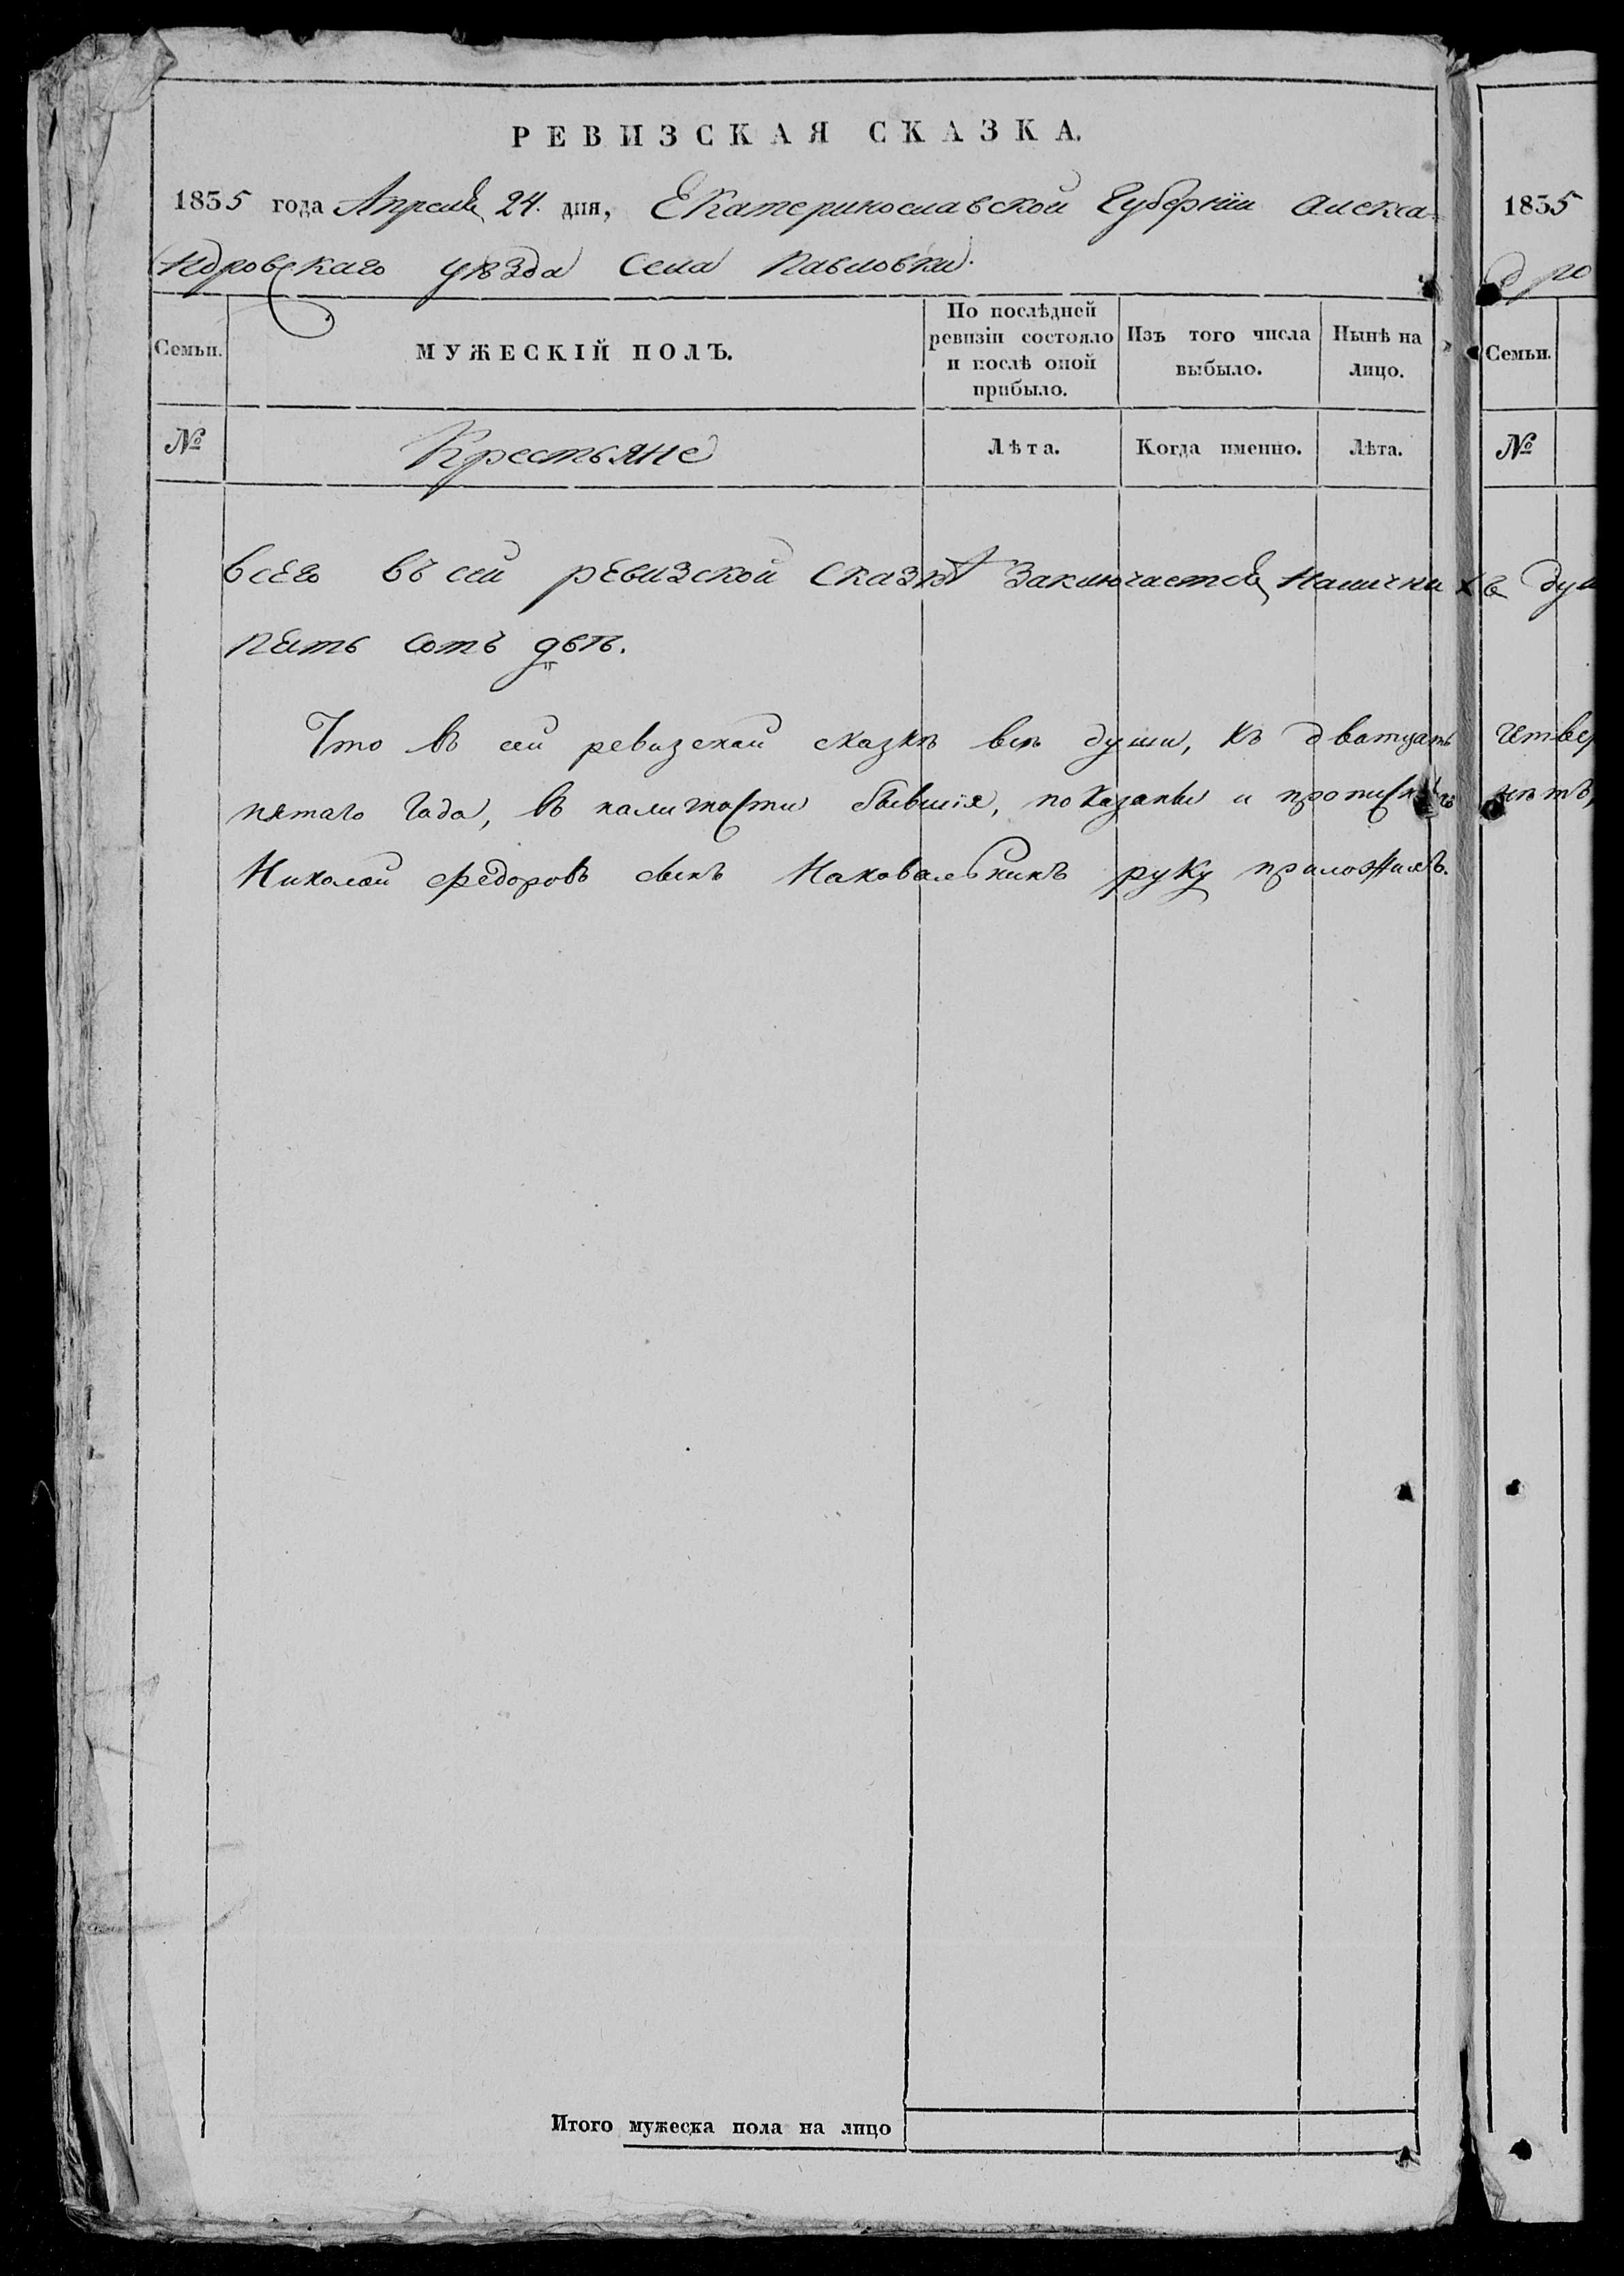 РЕВИЗСКАЯ СКАЗКА.
1835 года Апреля 24. дня, Екатеринославской Губернiи Алекса
ндровскаго уѣзда Села Павловки.
Семьи.
МУЖЕСКІЙ ПОЛЪ.
По послѣдней ревизіи состояло и послѣ оной прибыло.
Изъ того числа выбыло.
Ныпѣ на лицо.
№
Крестьяне
Лѣта.
Когда именно.
Лѣта.
всего въ сей ревизской сказкѣ заключается наличныхъ
пять сотъ двѣ.
Что въ сей ревизской сказкѣ всѣ души, къ дватцать
пятаго года, въ наличности бывшія, показаны и
Николай Федоровъ сынъ Наковальникъ руку приложилъ.
Итого мужеска пола на лицо
1835
дро
Семьи.
№